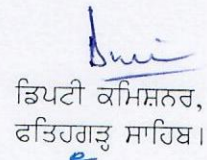 ਡਿਪਟੀ ਕਮਿਸ਼ਨਰ,
ਫਤਿਹਗੜ੍ਹ ਸਾਹਿਬ।